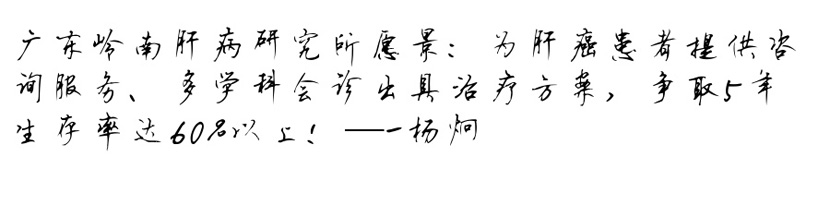 广东岭南肝病研究所愿景：为肝癌患者提供咨
询服务、多学科会诊出具治疗方案，争取5年
生存率达60%以上！——杨炯